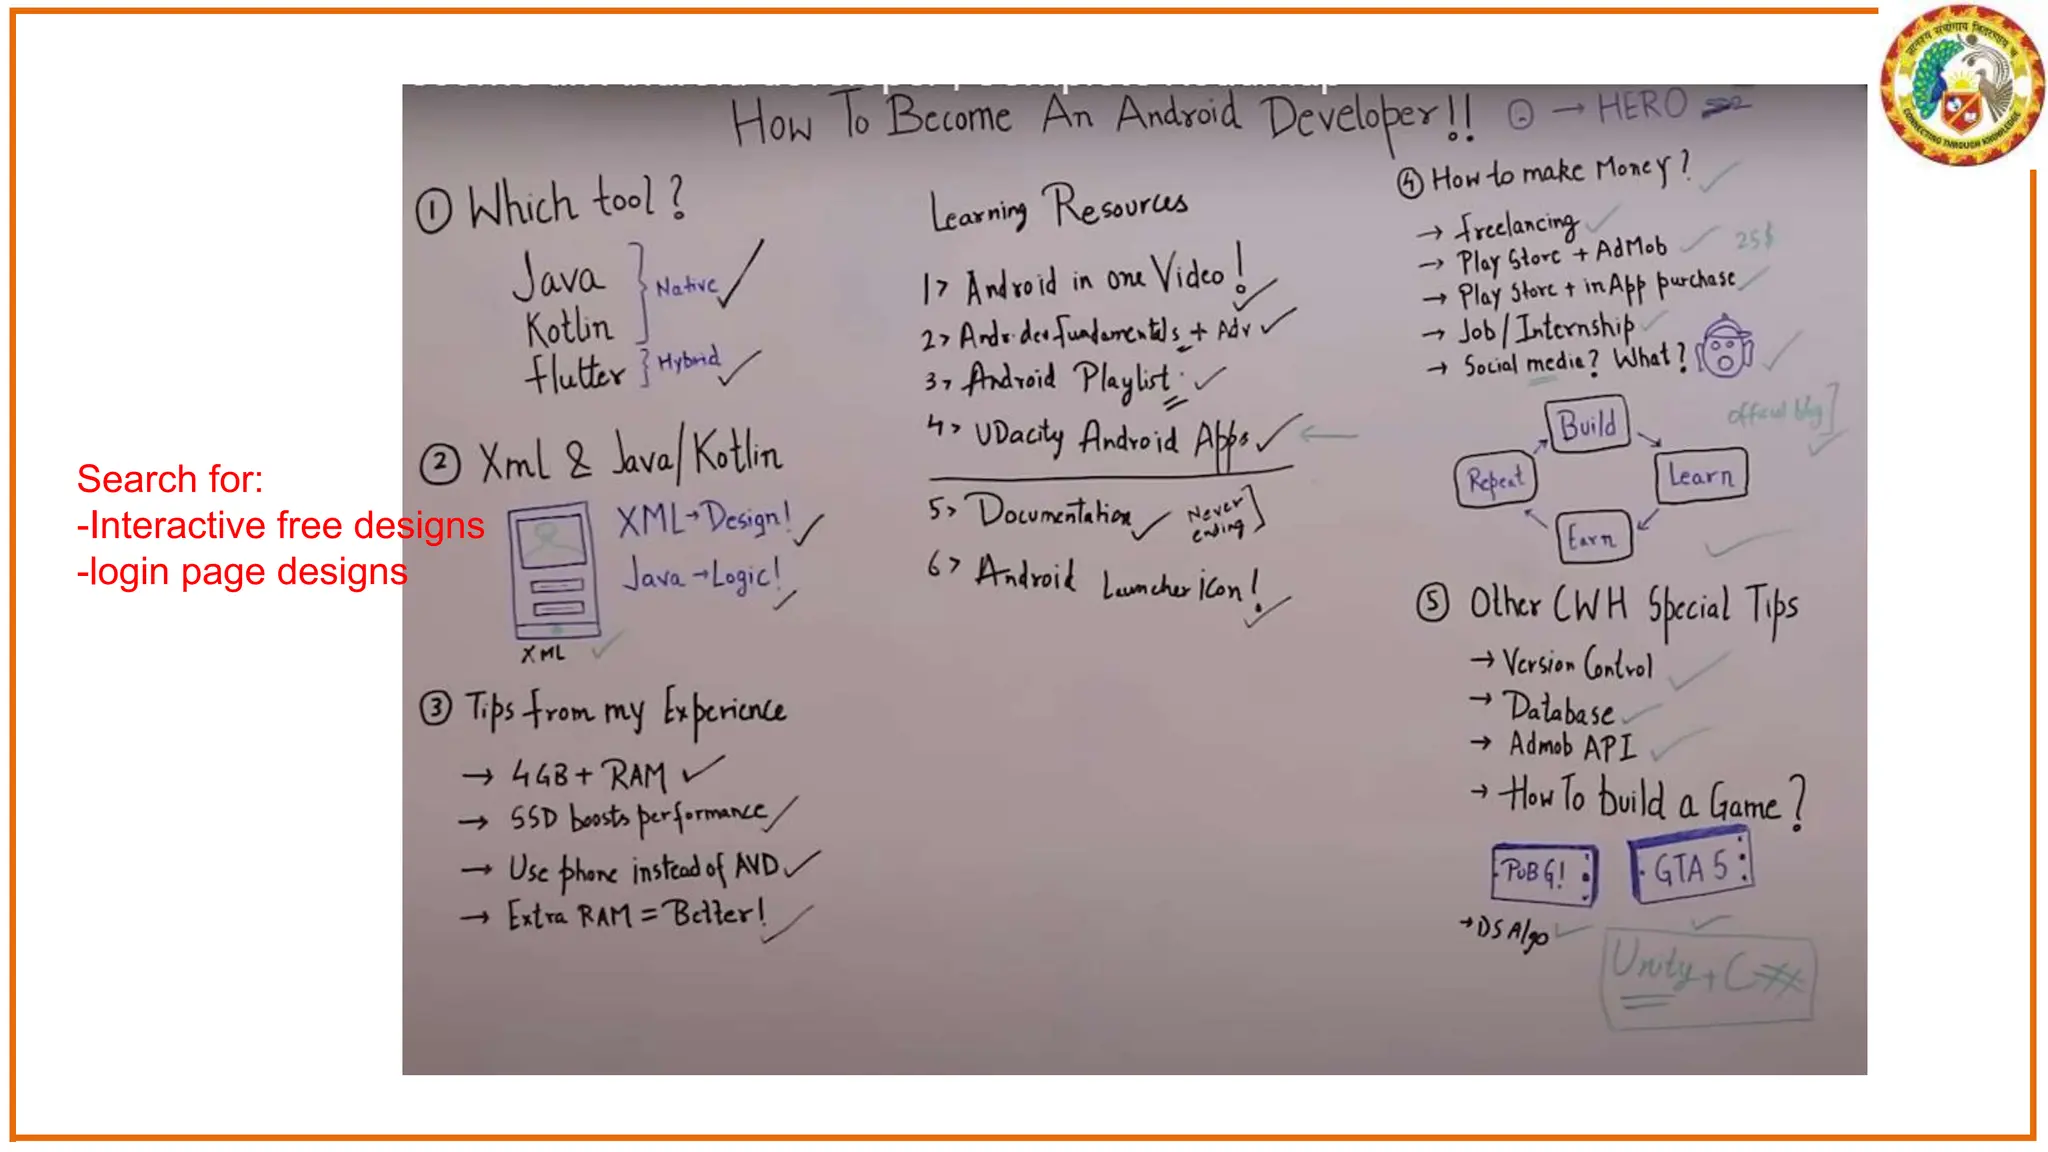 How To Become An Android Developer!! → HERO
① Which tool?
Java
Kotlin
Native
flutter
Hybrid
② Xml & Java/Kotlin
XML→Design!
Java→Logic!
XML
③ Tips from my Experience
→ 4GB+ RAM
→ SSD boosts performance
→ Use phone instead of AVD
→ Extra RAM = Better!
Learning Resources
1> Android in one Video!
2> Andr. dev fundamentals + Adv
3> Android Playlist
4> UDacity Android Apps
5> Documentation
Never
ending
6> Android Launcher icon!
④ How to make Money?
→ freelancing
→ Play Store + AdMob 25$
→ Play Store + in App purchase
→ Job/Internship
→ Social media? What?
official blog
Build
Learn
Earn
Repeat
⑤ Other CWH Special Tips
→ Version Control
→ Database
→ Admob API
→ How To build a Game?
PUBG!
GTA 5
→ DS Algo
Unity + C#
Search for:
-Interactive free designs
-login page designs
CONNECTING THROUGH KNOWLEDGE